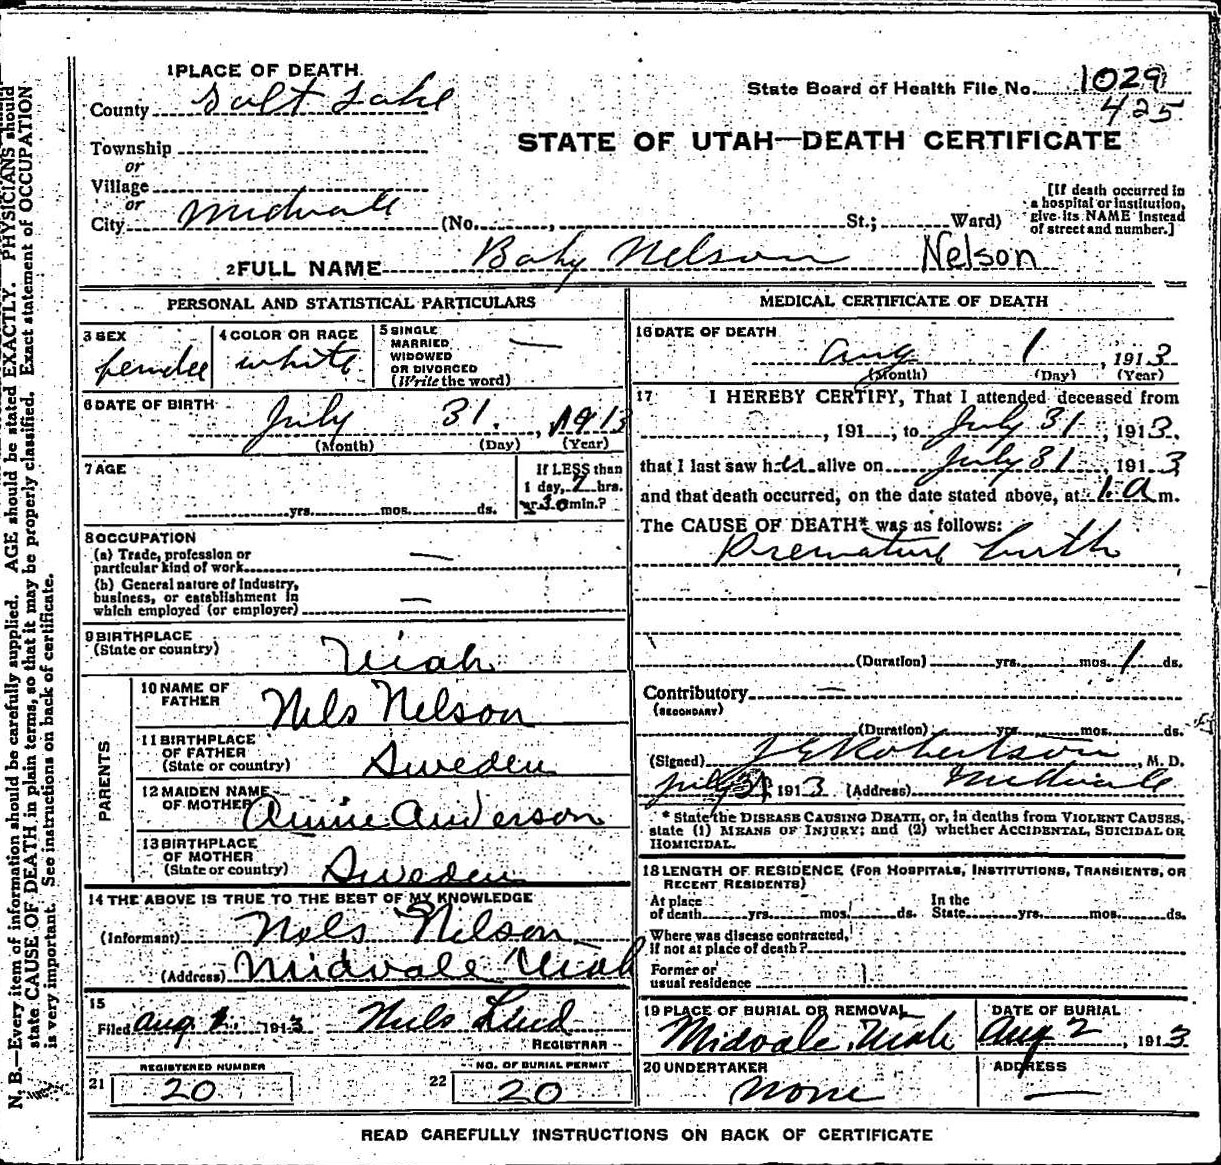 1 PLACE OF DEATH
County Salt Lake
State Board of Health File No. 1029
425
Township
or
Village
or
City Midvale (No. , St.; Ward)
STATE OF UTAH—DEATH CERTIFICATE
[If death occurred in
a hospital or institution,
give its NAME instead
of street and number.]
2 FULL NAME Baby Nelson Nelson
PERSONAL AND STATISTICAL PARTICULARS
3 SEX
female
4 COLOR OR RACE
white
5 SINGLE
MARRIED
WIDOWED
OR DIVORCED
(Write the word) —
6 DATE OF BIRTH
July 31, 1913
(Month) (Day) (Year)
7 AGE
yrs. mos. ds.
If LESS than
1 day, 7 hrs.
or 30 min.?
8 OCCUPATION
(a) Trade, profession or
particular kind of work —
(b) General nature of Industry,
business, or establishment in
which employed (or employer) —
9 BIRTHPLACE
(State or country) Utah
PARENTS
10 NAME OF
FATHER Nels Nelson
11 BIRTHPLACE
OF FATHER
(State or country) Sweden
12 MAIDEN NAME
OF MOTHER Annie Anderson
13 BIRTHPLACE
OF MOTHER
(State or country) Sweden
14 THE ABOVE IS TRUE TO THE BEST OF MY KNOWLEDGE
(Informant) Nels Nelson
(Address) Midvale Utah
15
Filed Aug 1913 Nels Lind
REGISTRAR
REGISTERED NUMBER
21 20
NO. OF BURIAL PERMIT
22 20
MEDICAL CERTIFICATE OF DEATH
16 DATE OF DEATH
Aug 1, 1913
(Month) (Day) (Year)
17 I HEREBY CERTIFY, That I attended deceased from
, 191 , to July 31, 1913,
that I last saw her alive on July 31, 1913
and that death occurred, on the date stated above, at 1 a m.
The CAUSE OF DEATH* was as follows:
Premature birth
(Duration) yrs. mos. 1 ds.
Contributory —
(SECONDARY)
(Duration) yrs. mos. ds.
(Signed) J E Robertson, M. D.
July 31, 1913 (Address) Midvale
* State the DISEASE CAUSING DEATH, or, in deaths from VIOLENT CAUSES,
state (1) MEANS OF INJURY; and (2) whether ACCIDENTAL, SUICIDAL OR
HOMICIDAL.
18 LENGTH OF RESIDENCE (FOR HOSPITALS, INSTITUTIONS, TRANSIENTS, OR
RECENT RESIDENTS)
At place In the
of death yrs. mos. ds. State yrs. mos. ds.
Where was disease contracted,
if not at place of death?
Former or
usual residence
19 PLACE OF BURIAL OR REMOVAL
Midvale, Utah
DATE OF BURIAL
Aug 2, 1913
20 UNDERTAKER
none
ADDRESS
—
READ CAREFULLY INSTRUCTIONS ON BACK OF CERTIFICATE
N. B.—Every item of information should be carefully supplied. AGE should be stated EXACTLY. PHYSICIANS should
state CAUSE OF DEATH in plain terms, so that it may be properly classified. Exact statement of OCCUPATION
is very important. See instructions on back of certificate.